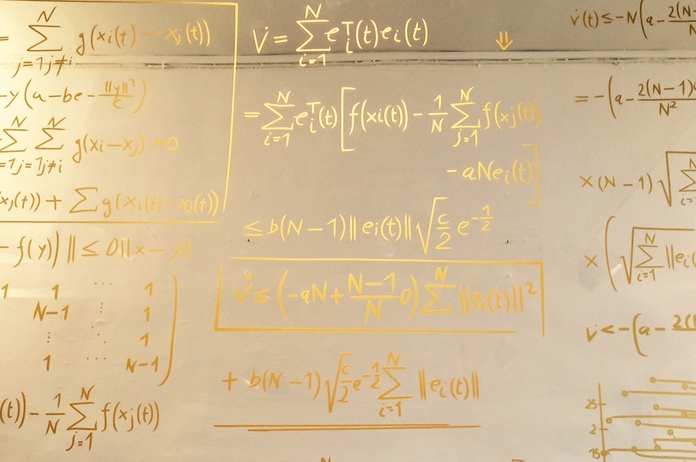 = ∑_{j=1 j≠i}^{N} g(x_i(t) - x_j(t))
-y(a-be-\frac{||y||^2}{c})
∑ ∑_{j=1 j≠i}^{N} g(x_i-x_j)=0
(x_j(t)) + ∑g(x_i(t)-x_j(t))
-f(y)|| ≤ 0||x-y||
1 1 ⋯ 1
N-1 ⋮ 1
⋮ ⋱ ⋮
1 ⋯ N-1
(t)) - \frac{1}{N} ∑_{j=1}^{N} f(x_j(t))
V̇ = ∑_{i=1}^{N} e_i^T(t)e_i(t)
= ∑_{i=1}^{N} e_i^T(t)[f(x_i(t)) - \frac{1}{N} ∑_{j=1}^{N} f(x_j(t))
-aNe_i(t)]
≤ b(N-1)||e_i(t)||√\frac{c}{2} e^{-\frac{1}{2}}
≤ (-aN + \frac{N-1}{N} 0) ∑^{N} ||e_i(t)||^2
+ b(N-1)√\frac{c}{2} e^{-\frac{1}{2}} ∑_{i=1}^{N} ||e_i(t)||
⇓
v̇(t) ≤ -N(a - \frac{2(N-
= -(a - \frac{2(N-1)}{N^2}
×(N-1)√∑_{i=1}^{N}
×(√∑_{i=1}^{N} ||e_i(
v̇ < -(a - \frac{2(
25
2
15